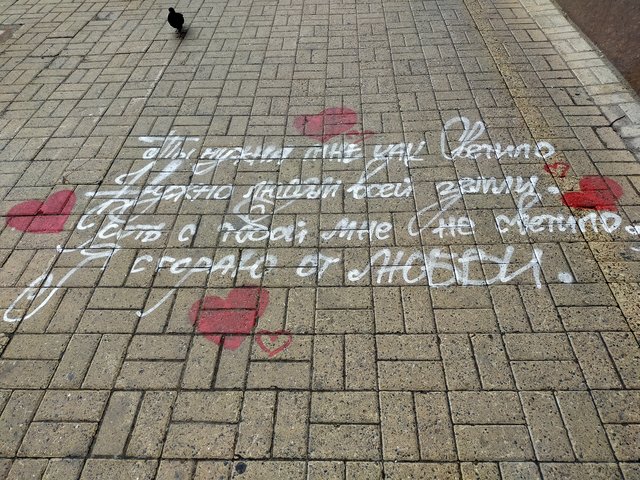 Ты нужна мне как Светило
Нужно людям всей земли.
Быть с тобой мне не светило,
Я сгораю от ЛЮБВИ.